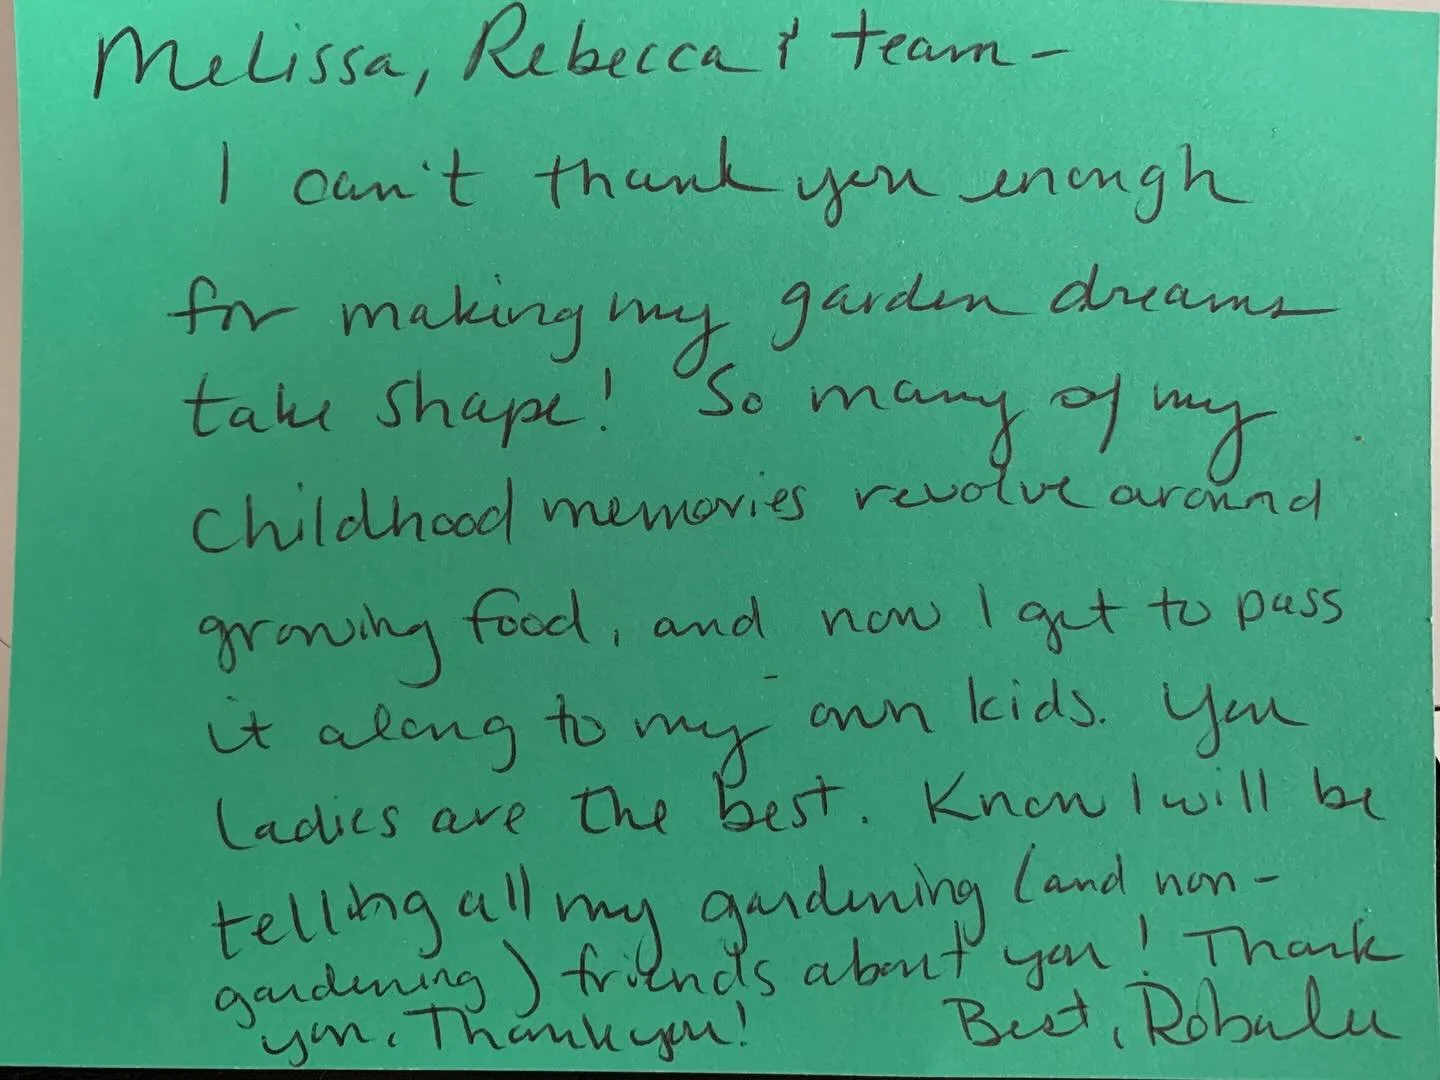 Melissa, Rebecca & team –
I can't thank you enough
for making my garden dreams
take shape! So many of my
childhood memories revolve around
growing food, and now I get to pass
it along to my own kids. You
ladies are the best. Know I will be
telling all my gardening (and non-
gardening) friends about you! Thank
you, Thank you! Best,